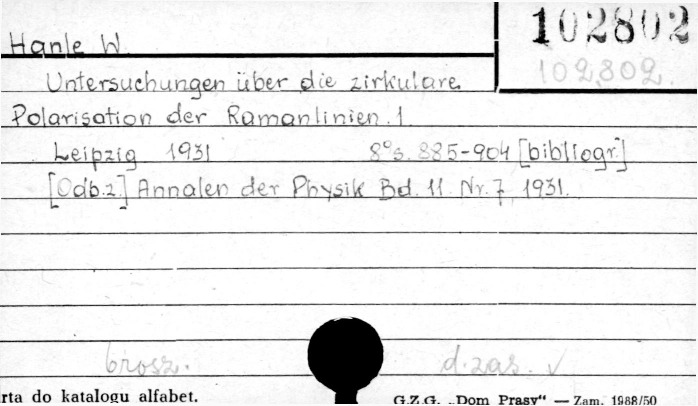 102802
Hanle W.
102.802.
Untersuchungen über die zirkulare
Polarisation der Ramanlinien. 1
Leipzig 1931 8° s. 885-904 [bibliogr.]
[Odb.z.] Annalen der Physik Bd. 11. Nr. 7, 1931.
brosz. d. zas. ✓
rta do katalogu alfabet. G.Z.G. „Dom Prasy“ — Zam. 1988/50